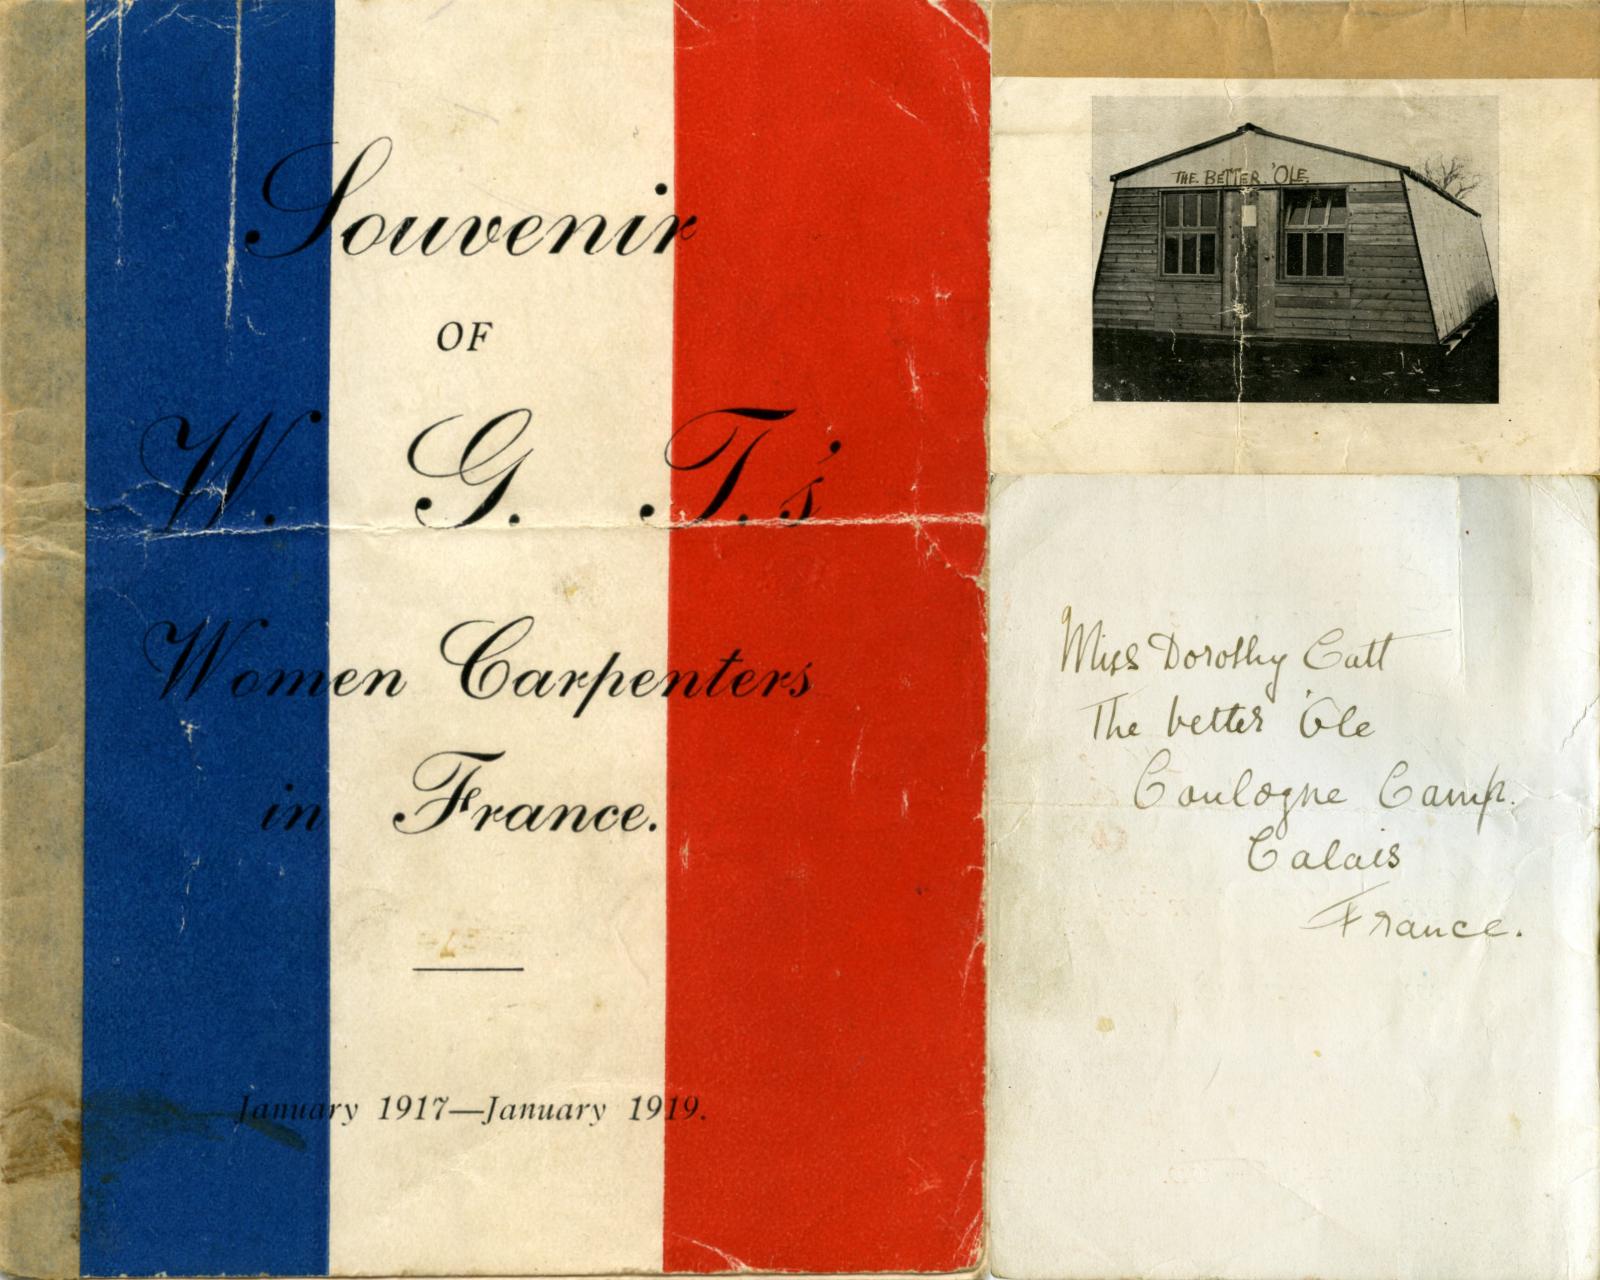 Souvenir
OF
W. G. T.'s
Women Carpenters
in France.
January 1917—January 1919.
THE BETTER 'OLE.
Miss Dorothy Catt
The better 'Ole
Coulogne Camp.
Calais
France.